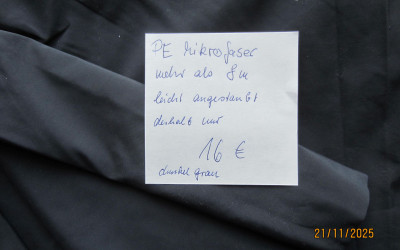 PE Mikrofaser
mehr als 8 m
leicht angestaubt
deshalb nur
16 €
dunkel grau
21/11/2025